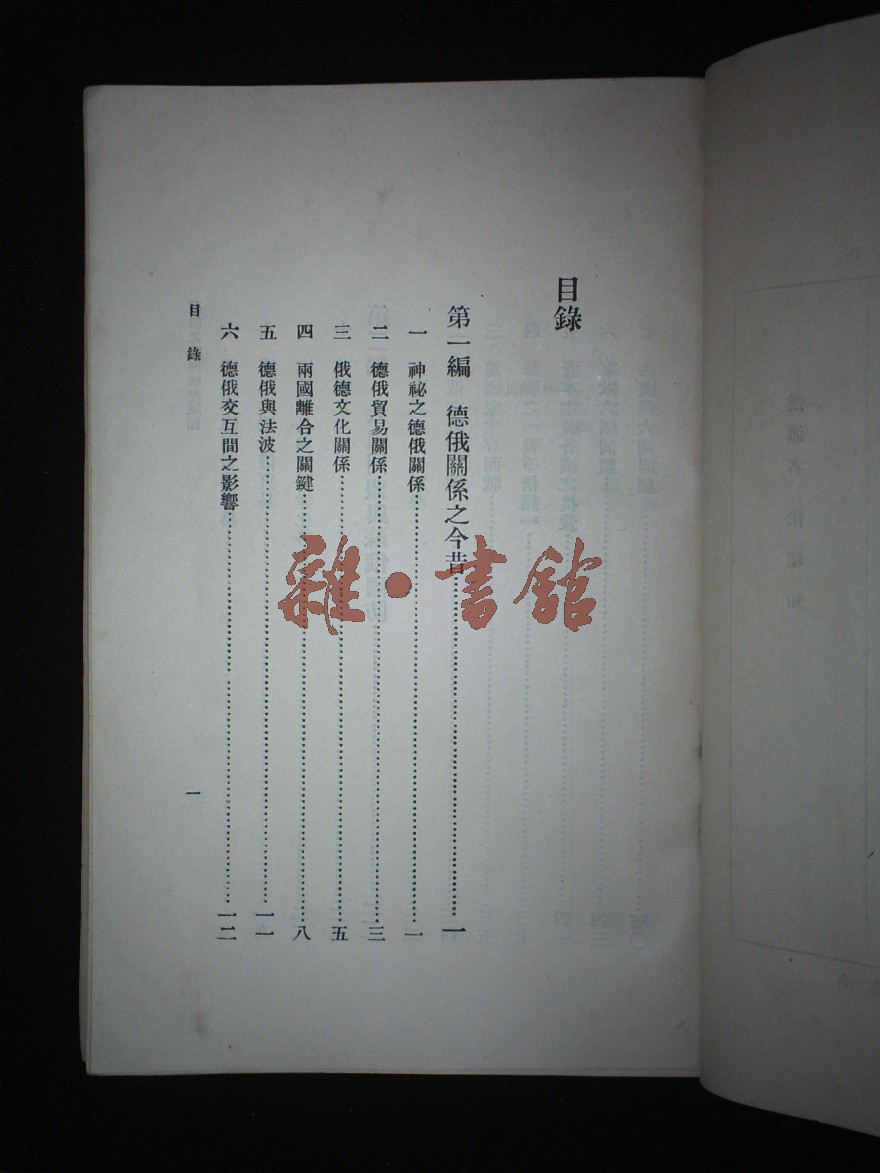 目錄
第一編　德俄關係之今昔……一
一　神祕之德俄關係……一
二　德俄貿易關係……三
三　俄德文化關係……五
四　兩國離合之關鍵……八
五　德俄與法波……一一
六　德俄交互間之影響……一二
目錄
一
雜·書館